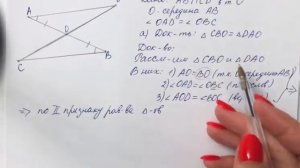 Дано: AB∩CD в т. O
O-середина AB
∠OAD=∠OBC
а) Док-ть: △CBO=△DAO
Док-во:
Рассм-им △CBO и △DAO
В них: 1) AO=BO (т.к. O середина AB)
2) ∠OAD=∠OBC (по усл)
3) ∠AOD=∠BOC (ве
⇒ по II признаку рав-ва △-ов
A
D
O
C
B